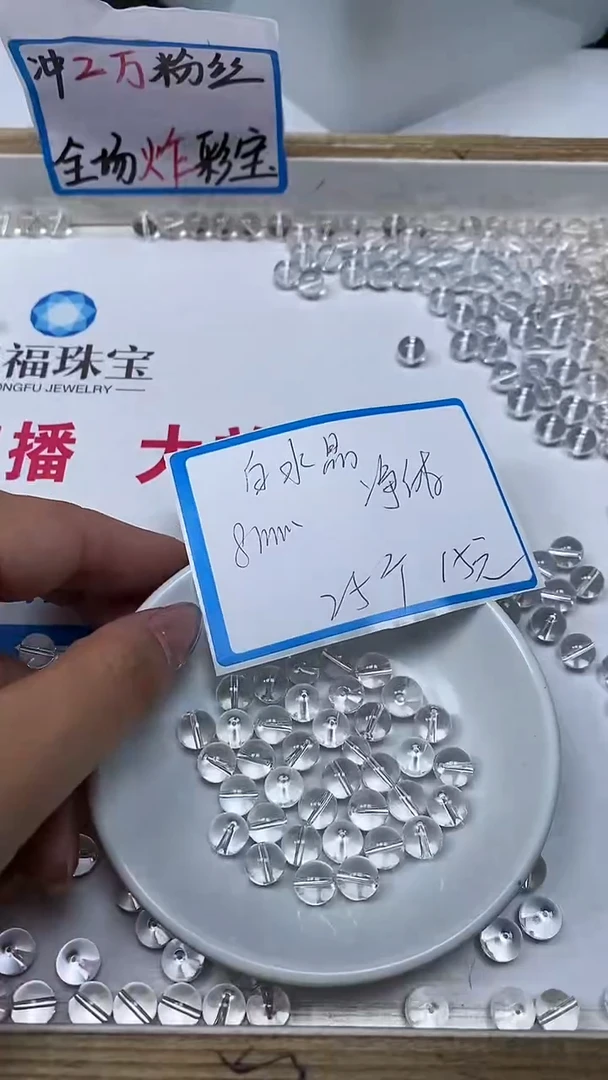 冲2万粉丝
全场炸彩宝
福珠宝
ONGFU JEWELRY
播 大
白水晶 净体
8mm
25个 15元